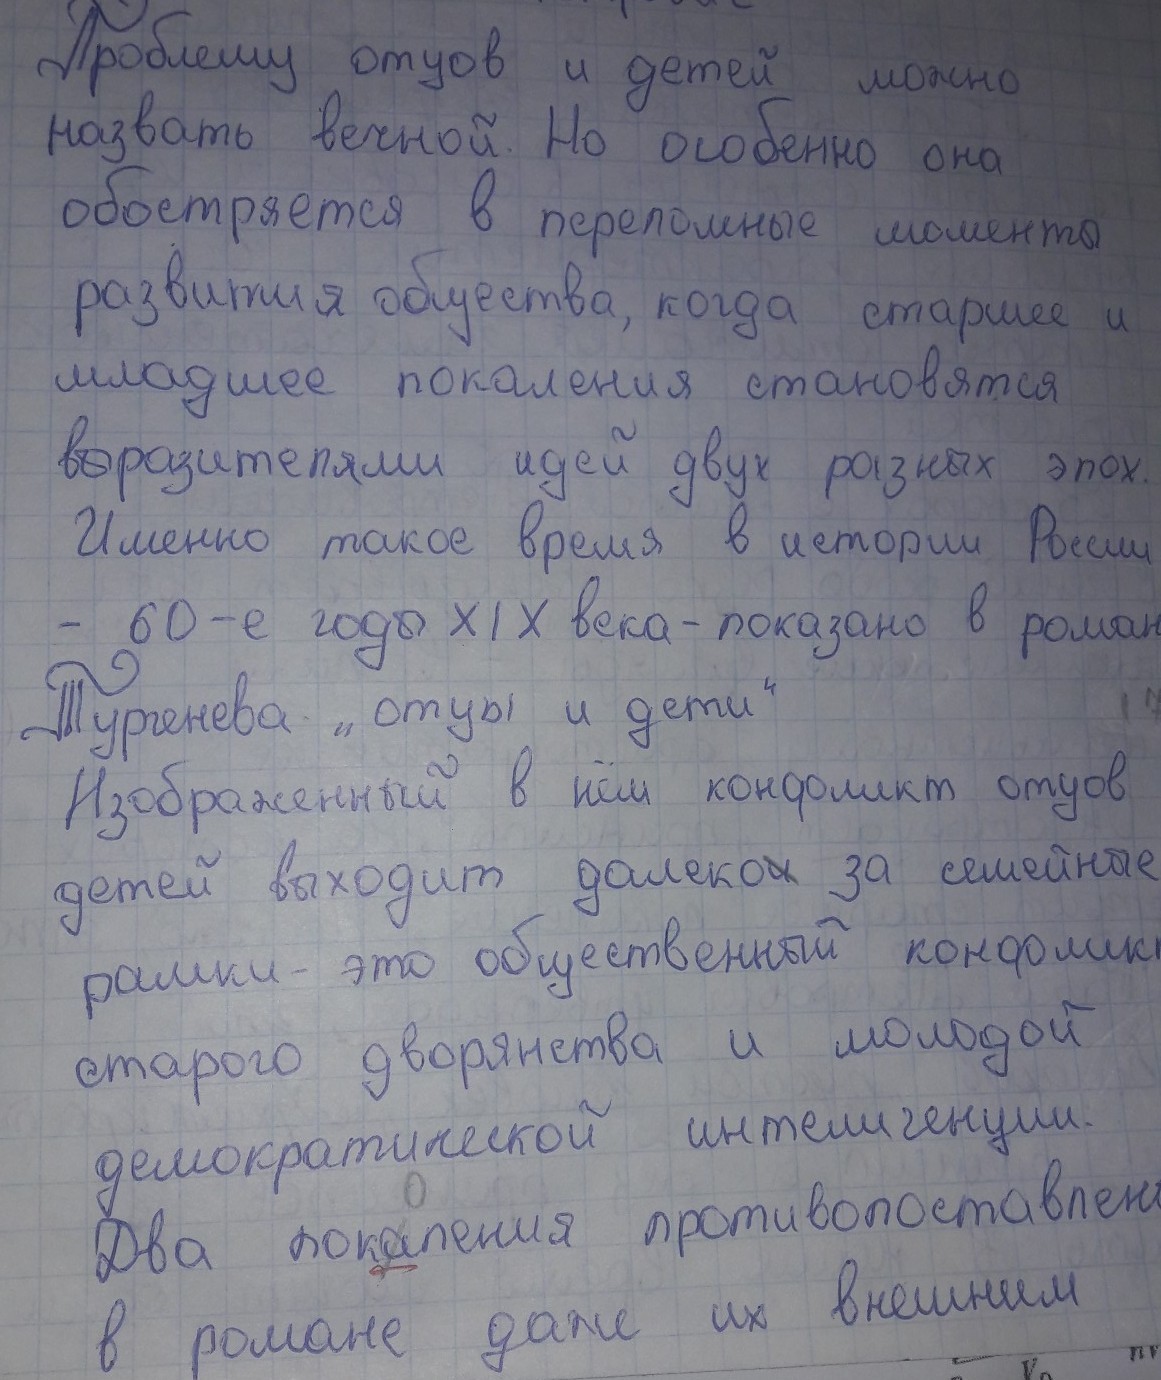 Проблему отцов и детей можно
назвать вечной. Но особенно она
обостряется в переломные моменты
развития общества, когда старшее и
младшее покаления становятся
выразителями идей двух разных эпох.
Именно такое время в истории России
- 60-е годы XIX века - показано в роман
Тургенева „отцы и дети"
Изображенный в нём конфликт отцов
детей выходит далеко за семейные
рамки - это общественный конфликт
старого дворянства и молодой
демократической интелигенции.
о
Два покаления противопоставлен
в романе даже их внешним